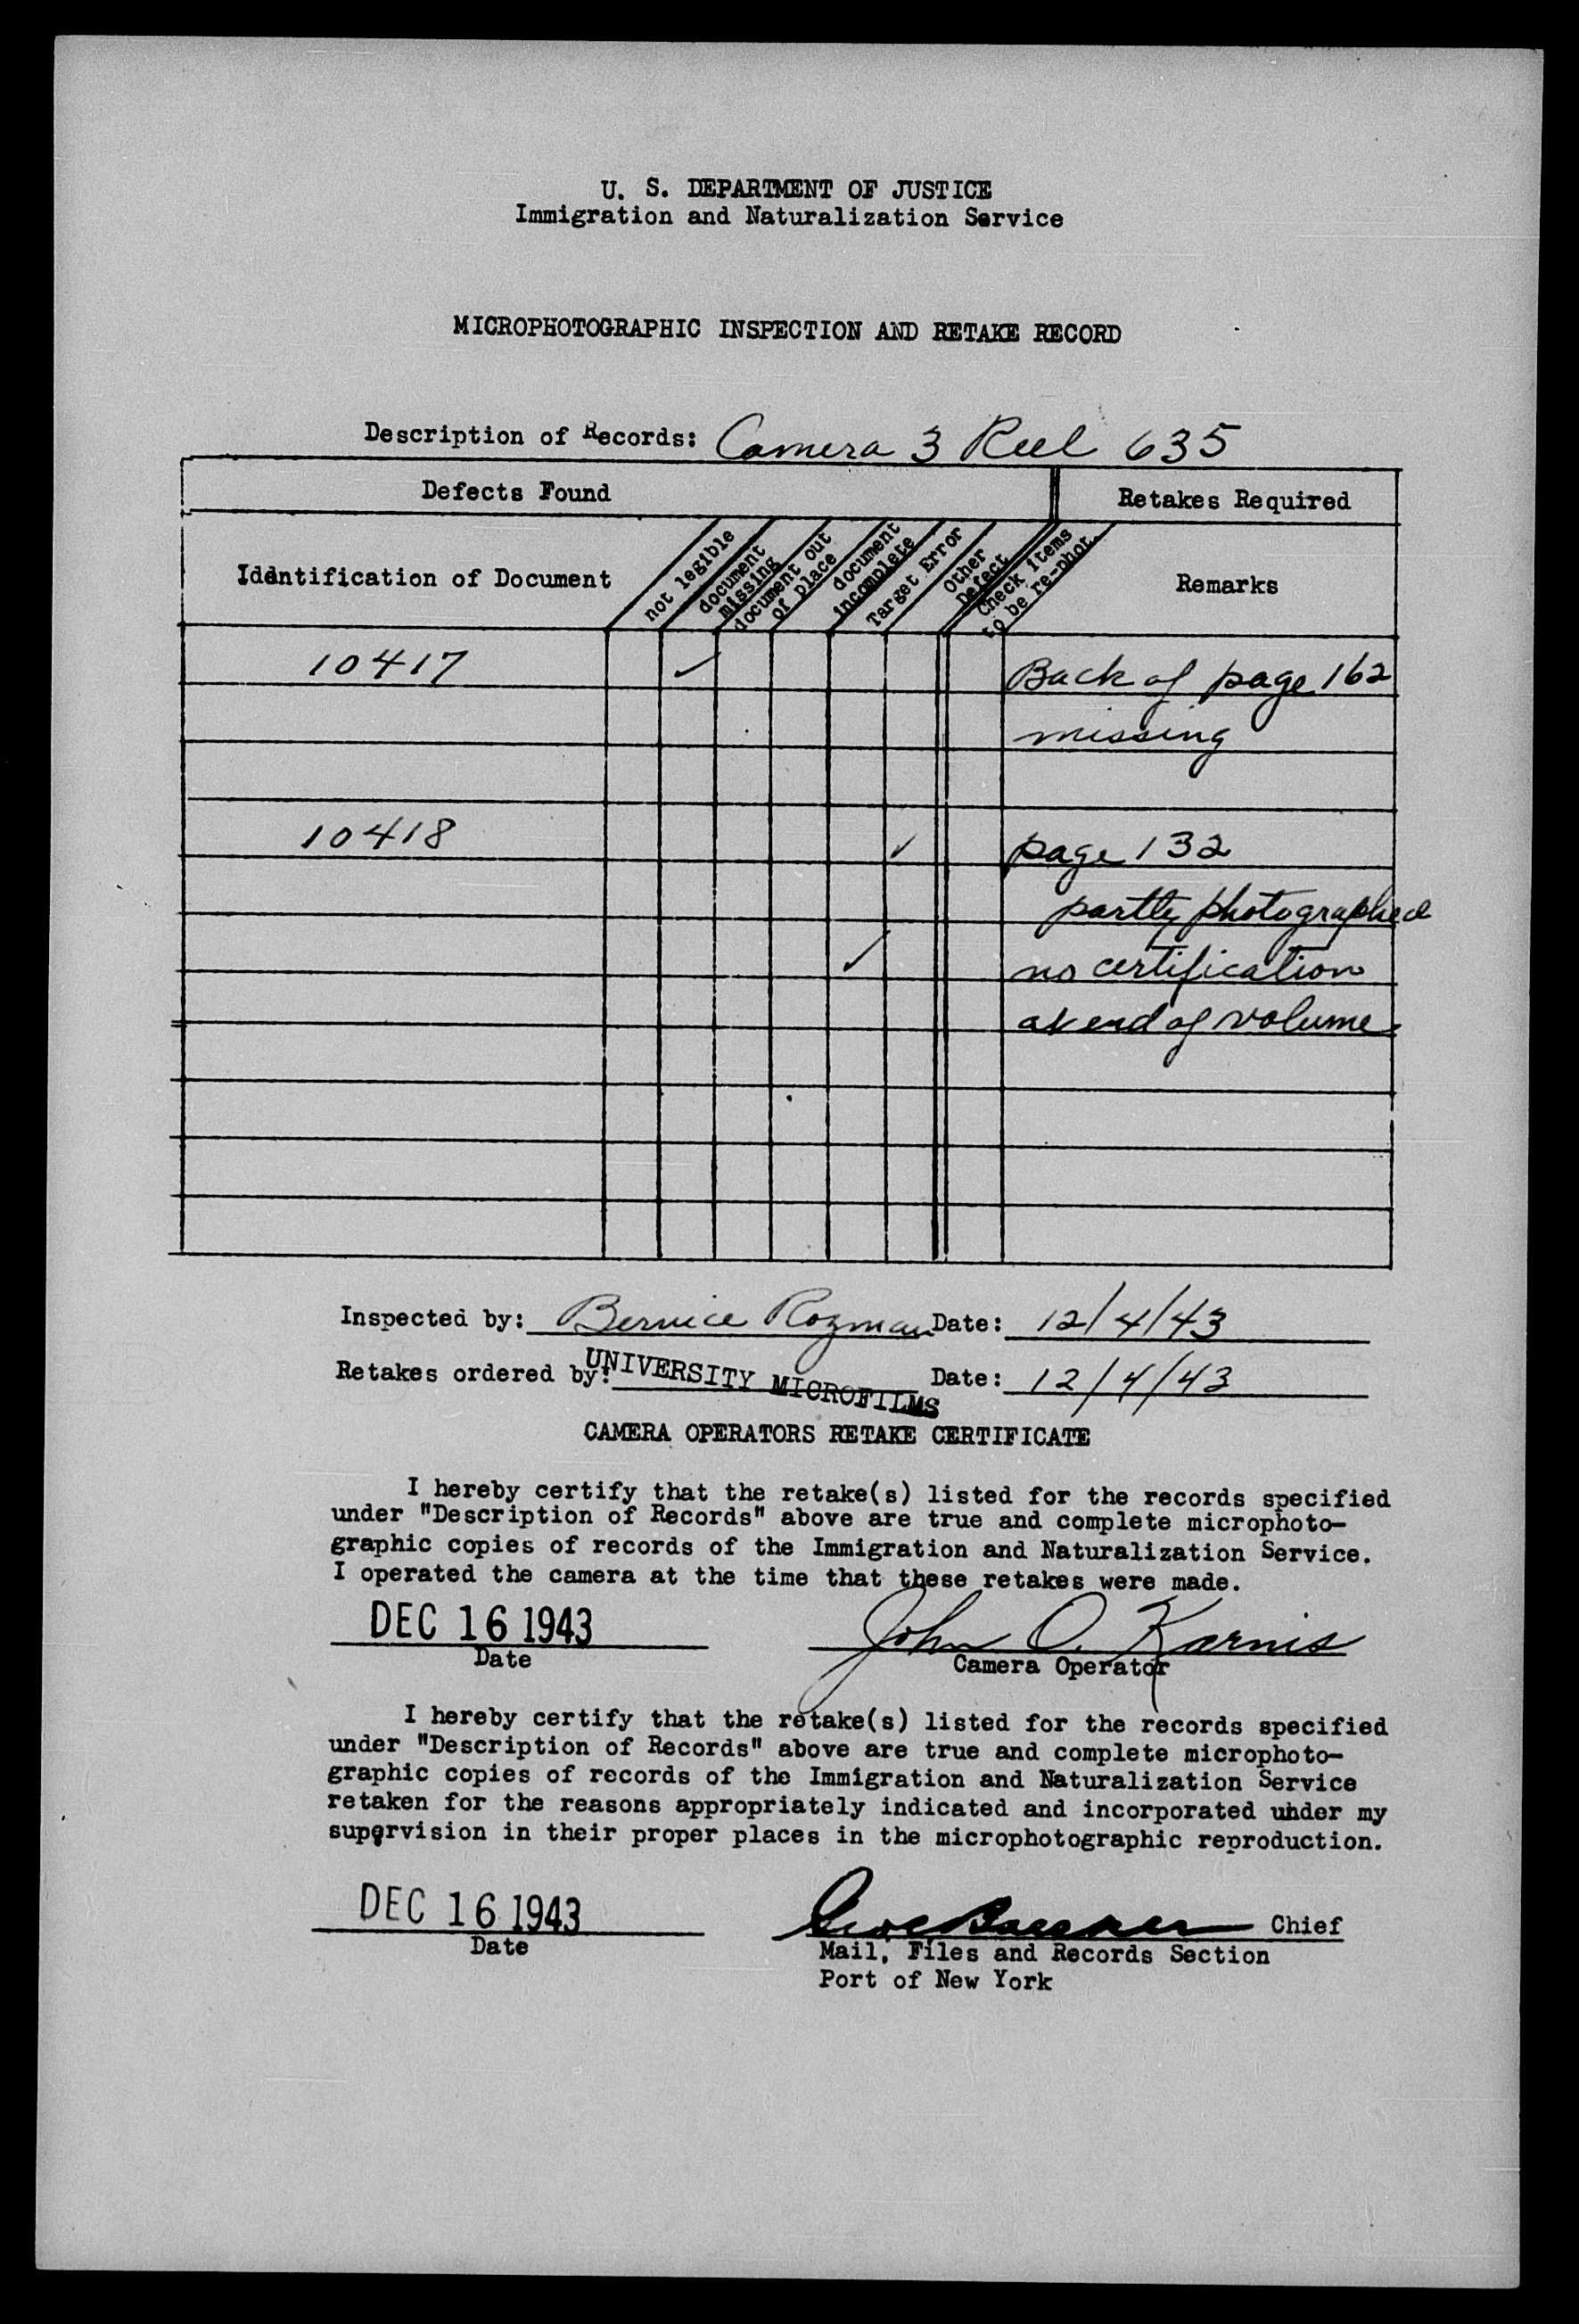 U. S. DEPARTMENT OF JUSTICE
Immigration and Naturalization Service
MICROPHOTOGRAPHIC INSPECTION AND RETAKE RECORD
Description of Records: Camera 3 Reel 635
Defects Found
Retakes Required
Identification of Document
not legible
document missing
document out of place
document incomplete
Target Error
Other Defect
Check items to be re-phot.
Remarks
10417 ✓ Back of page 162
missing
10418 ✓ page 132
partly photographed
✓ no certification
at end of volume
Inspected by: Bernice Rozman Date: 12/4/43
Retakes ordered by: UNIVERSITY MICROFILMS Date: 12/4/43
CAMERA OPERATORS RETAKE CERTIFICATE
I hereby certify that the retake(s) listed for the records specified
under "Description of Records" above are true and complete microphoto-
graphic copies of records of the Immigration and Naturalization Service.
I operated the camera at the time that these retakes were made.
DEC 16 1943 John O. Karnis
Date Camera Operator
I hereby certify that the retake(s) listed for the records specified
under "Description of Records" above are true and complete microphoto-
graphic copies of records of the Immigration and Naturalization Service
retaken for the reasons appropriately indicated and incorporated under my
supervision in their proper places in the microphotographic reproduction.
DEC 16 1943 Chief
Date Mail, Files and Records Section
Port of New York